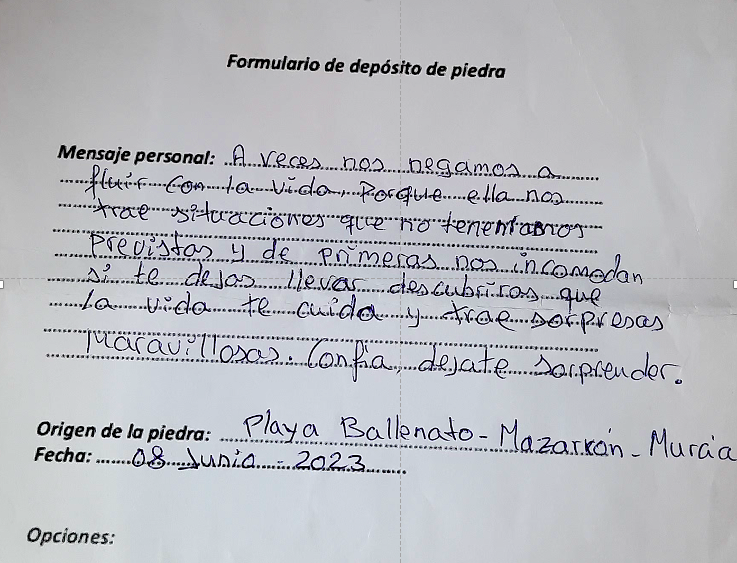 Formulario de depósito de piedra
Mensaje personal: A veces nos negamos a
fluir con la vida, Porque ella nos
trae situaciones que no teneníamos
Previstas y de primeras nos incomodan
si te dejas llevar descubriras que
la vida te cuida y trae sorpresas
Maravillosas. Confía, dejate sorprender.
Origen de la piedra: Playa Ballenato - Mazarrón - Murcia
Fecha: 08 Junio - 2023
Opciones: